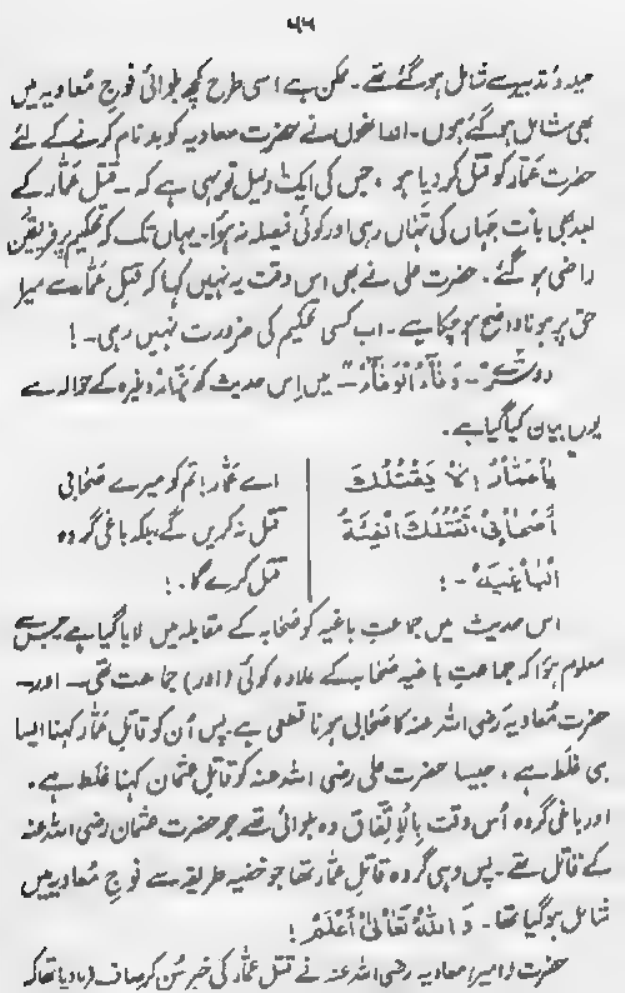 ۵۶
حیلہ و تدبیر سے شامل ہو گئے تھے۔ ممکن ہے اسی طرح کچھ بلوائی فوجِ مُعاویہ میں
بھی شامل ہو گئے ہوں۔ اور انھوں نے حضرت معاویہ کو بدنام کرنے کے لئے
حضرت عمّار کو قتل کر دیا ہو، جس کی ایک دلیل تو یہی ہے کہ ـ قتلِ عمّار کے
بعد بھی بات جہاں کی تہاں رہی اور کوئی فیصلہ نہ ہوا۔ یہاں تک کہ تحکیم پر فریقین
راضی ہو گئے۔ حضرت علی نے بھی اس وقت یہ نہیں کہا کہ قتلِ عمّار سے میرا
حق پر ہونا واضح ہو چکا ہے۔ اب کسی تحکیم کی ضرورت نہیں رہی۔!
دوسرے ـ وَفَاءُ الْوَفَاء ـ میں اِس حدیث کو وغیرہ کے حوالہ سے
یوں بیان کیا گیا ہے۔
یَا عَمَّارُ! لَا یَقْتُلُكَ
أَصْحَابِیْ، تَقْتُلُكَ الْفِئَةُ
الْبَاغِیَةُ ـ!
اے عمّار! تم کو میرے صَحابی
قتل نہ کریں گے، بلکہ باغی گروہ
قتل کرے گا۔!
اس حدیث میں جماعتِ باغیہ کو صَحابہ کے مقابلہ میں لایا گیا ہے جس سے
معلوم ہوا کہ جماعتِ باغیہ صَحابہ کے علاوہ کوئی (اور) جماعت تھی ـ اور ـ
حضرت مُعاویہ رَضی اللہ عنہ کا صَحابی ہونا قطعی ہے پس اُن کو قاتلِ عمّار کہنا ایسا
ہی غلط ہے، جیسا حضرت علی رضی اللہ عنہ کو قاتلِ عثمان کہنا غلط ہے۔
اور باغی گروہ اُس وقت بِالْاِتِّفَاق وہ بلوائی تھے جو حضرت عثمان رضی اللہ عنہ
کے قاتل تھے۔ پس وہی گروہ قاتلِ عمّار تھا جو خفیہ طریقہ سے فوجِ مُعاویہ میں
شامل ہو گیا تھا۔ وَاللّٰهُ تَعَالٰی أَعْلَمُ!
حضرت (امیر) معاویہ رضی اللہ عنہ نے قتلِ عمّار کی خبر سُن کر صاف فرما دیا تھا کہ